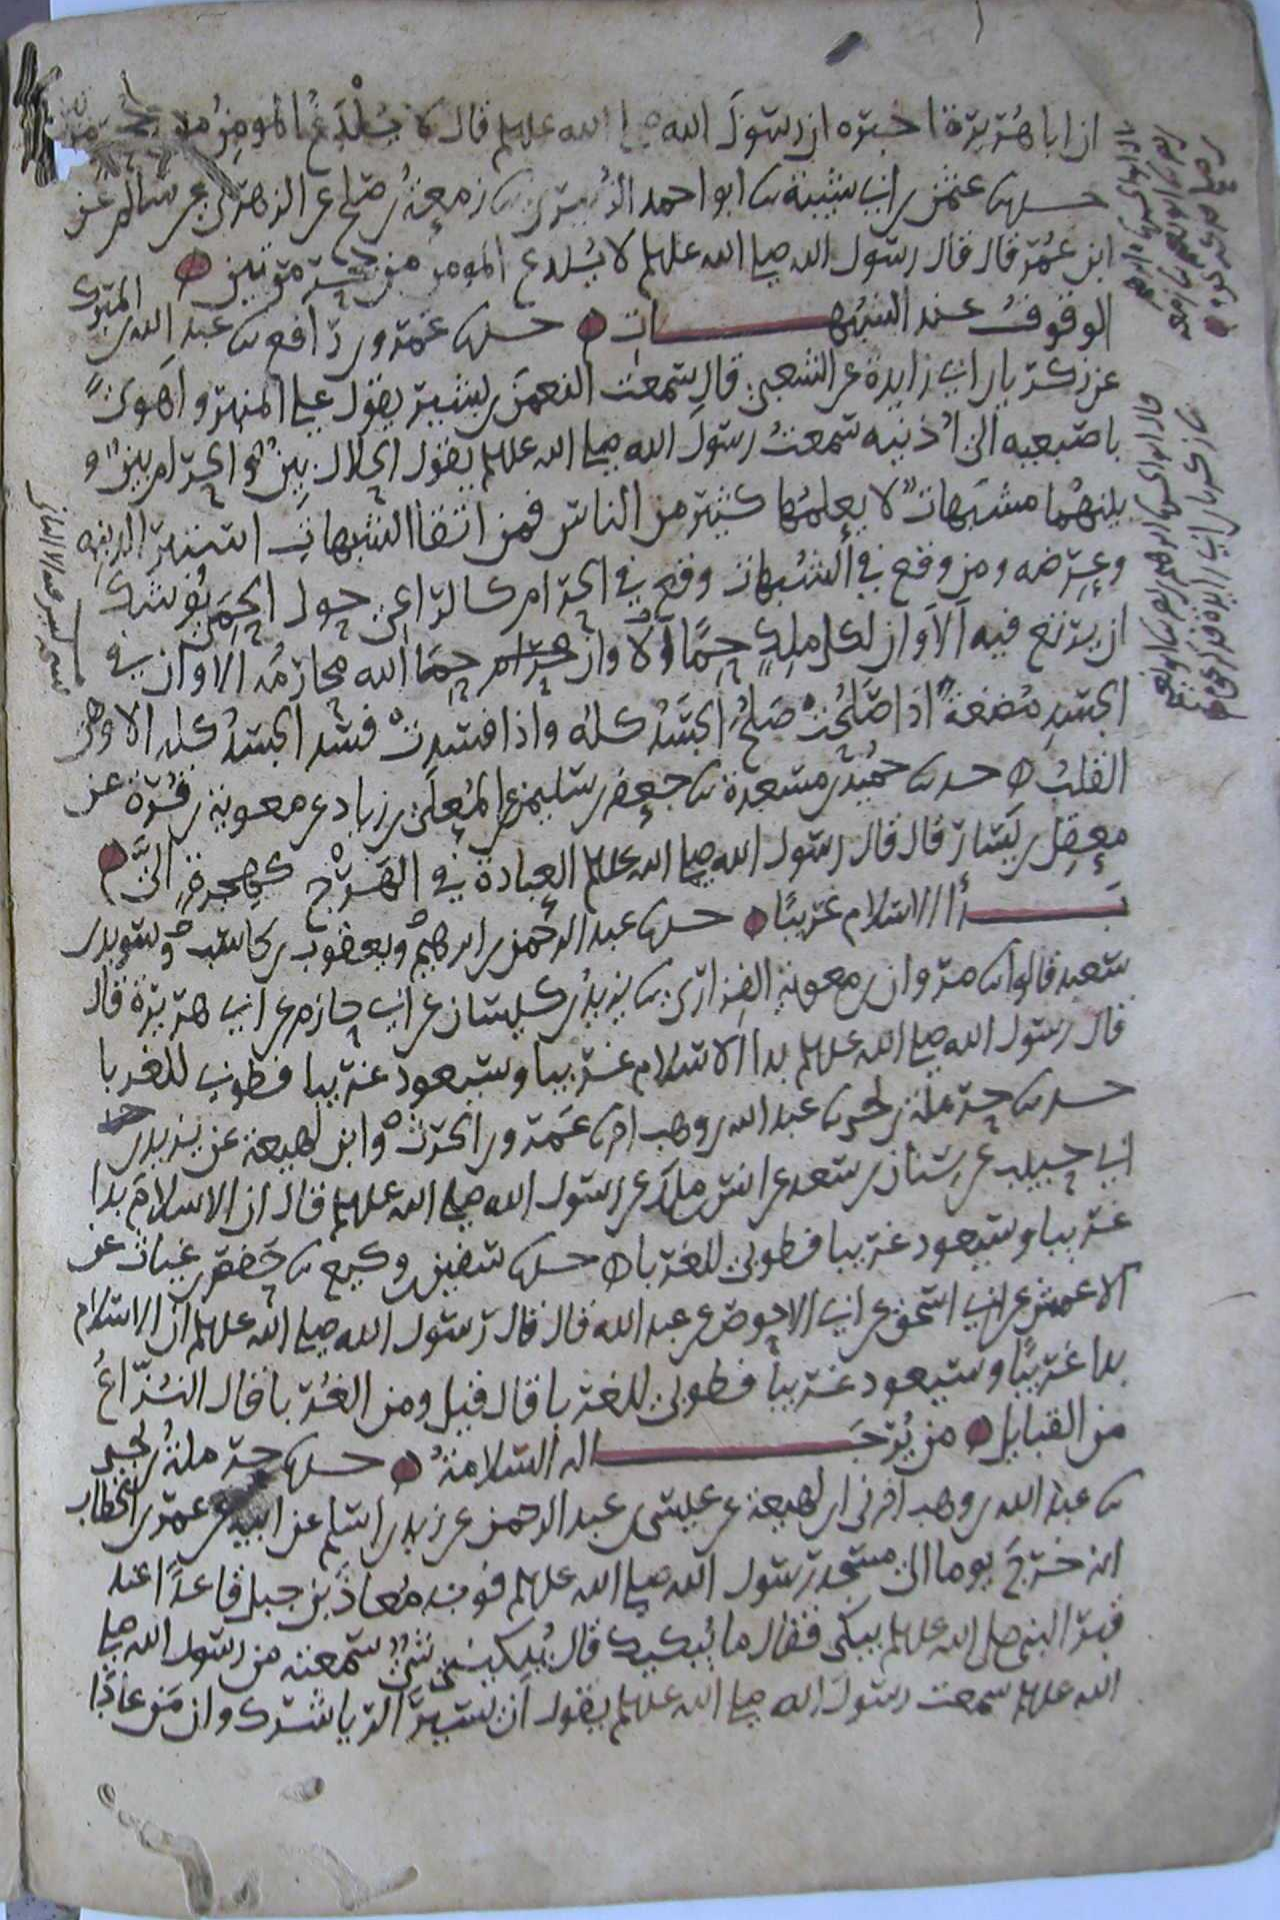 ان ابا هريرة اخبره ان رسول الله صلى الله عليه وسلم قال لا يُلْدَغُ المومن من جحر مرتين
حدثنا عثمن بن ابي شيبة ثنا ابو احمد الزبيري ثنا زمعة بن صلح عن الزهري عن سالم عن
ابن عمر قال قال رسول الله صلى الله عليه وسلم لا يُلدغ المومن من جحر مرتين
الوقوف عند الشبهات حدثنا عمرو بن رافع ثنا عبد الله بن المبرك
عن زكريا بن ابي زايدة عن الشعبي قال سمعت النعمن بن بشير يقول على المنبر واهوى
باصبعيه الى اُذنيه سمعتُ رسول الله صلى الله عليه وسلم يقول الحلال بين والحرام بين و
بينهُما مشبهات لا يعلمها كثير من الناس فمن اتقا الشبهات استبرا لدينه
وعِرضه ومن وقع في الشبهات وقع في الحرام كالراعي حول الحِمَى يُوشك
ان يرتع فيه اَلاَ وان لكل ملِكٍ حِمًا اَلا وان حِمَا الله محارمُه الا وان في
الجسدِ مُضغة اذا صَلُحَتْ صَلُحَ الجسَدُ كلُه واذا فسدتْ فسد الجسدُ كله الا وهي
القلبُ حدثنا حُميد بن مسعدة ثنا جعفر بن سليمن عن المُعلى بن زياد عن معوية بن قُرة عن
معقِل بن يَسَار قال قال رسول الله صلى الله عليه وسلم العِبادة في الهَرْج كهِجرةٍ اليَّ
بَدأ الاسلام غريبًا حدثنا عبد الرحمن بن ابرهيم ويعقوب بن كاسب وسويد بن
سعيد قالوا ثنا مروان بن معوية الفزاري ثنا يزيد بن كيسان عن ابي حازم عن ابي هريرة قال
قال رسول الله صلى الله عليه وسلم بدا الاسلام غريبا وسيعود غريبا فطوبى للغربا
حدثنا حرملة بن يحيى ثنا عبد الله بن وهب انا عمرو بن الحرث وابن لهيعة عن يزيد بن
ابي حبيب عن سنان بن سعد عن انس بن ملك عن رسول الله صلى الله عليه وسلم قال ان الاسلامَ بدا
غريبا وسيعود غريبا فطوبى للغربا حدثنا سفين بن وكيع ثنا حفص بن غياث عن
الاعمش عن ابي اسحق عن ابي الاحوص عن عبد الله قال قال رسول الله صلى الله عليه وسلم ان الاسلام
بدا غريبًا وسيعود غريبا فطوبى للغربا قال قيل ومن الغُربا قال النُزَّاعُ
من القبايل من يُرجَا له السلامةُ حدثنا حرملةُ بن يحيى
ثنا عبد الله بن وهب اخبرني ابن لهيعة عن عيسى بن عبد الرحمن عن زيد بن اسلم عن ابيه عن عمر بن الخطاب
انه خرَجَ يوما الى مسجد رسول الله صلى الله عليه وسلم فوجد مُعاذ بن جبل قاعدًا عند
قبر النبي صلى الله عليه وسلم يبكي فقال ما يُبكيك قال يُبكيني شيٌ سمعته من رسول الله صلى
الله عليه وسلم سمعت رسول الله صلى الله عليه وسلم يقول ان يسيرَ الريا شرك وان من عادا